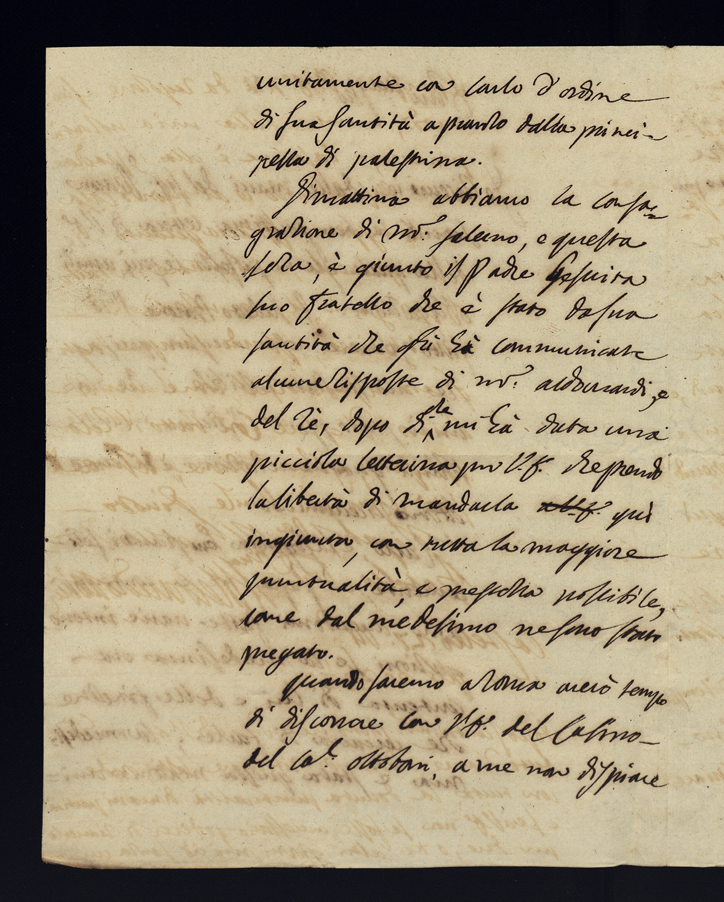 unitamente con Carlo d'ordine
di sua santità a pranzo dalla princi-
pessa di palestrina.
Stmattina abbiamo la consa=
grazione di m.r salerno, e questa
sera, è giunto il Padre Gesuita
suo fratello che è stato da sua
santità che gli hà communicate
alcune risposte di m.r aldourandi, e
del rè, dopo di che mi hà data una
picciola letterina per V.E. che prendo
la libertà di mandarla a V.E. quì
ingiunta, con tutta la maggiore
puntualità, e prestezza possibile,
come dal medesimo ne sono stato
pregato.
quando saremo a Roma averò tempo
di discorrere con V.E. del Casino
del Ca.l ottoboni, a me non dispiace